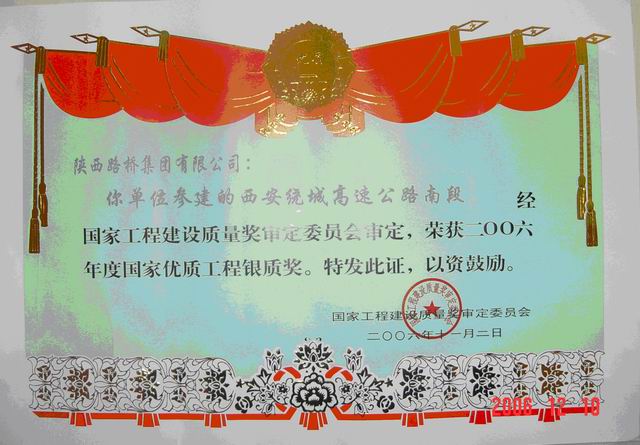 陕西路桥集团有限公司：
你单位参建的西安绕城高速公路南段 经
国家工程建设质量奖审定委员会审定，荣获二〇〇六
年度国家优质工程银质奖。特发此证，以资鼓励。
国家工程建设质量奖审定委员会
二〇〇六年十二月二日
2006 12 10